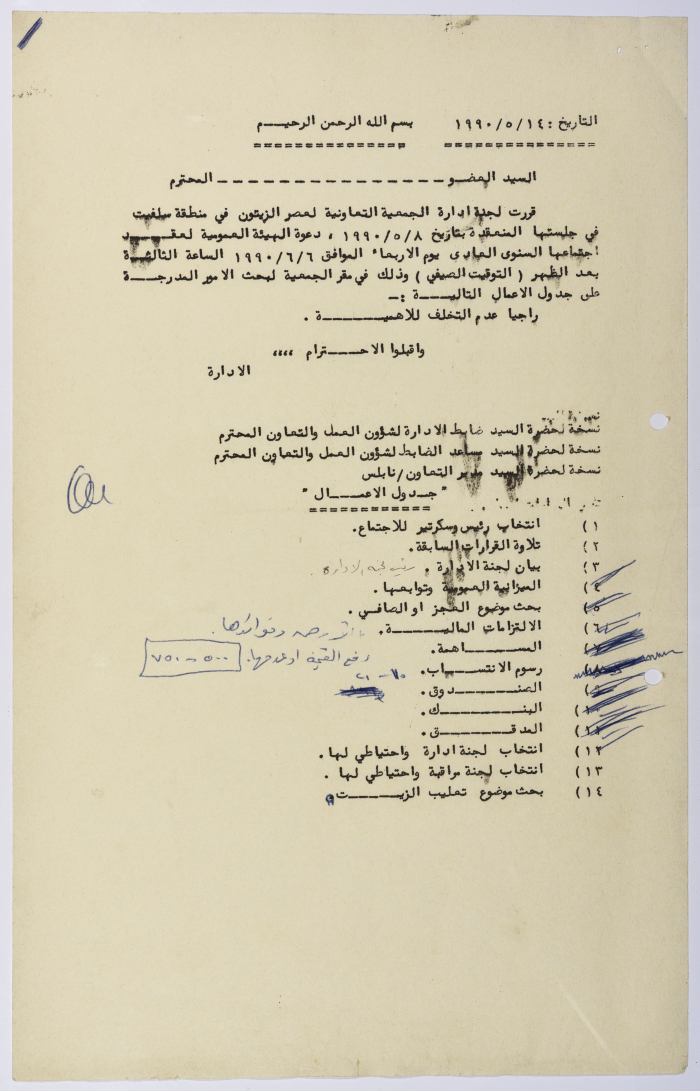 التاريخ : ١٩٩٠/٥/١٤ بسم الله الرحمن الرحيم
السيد العضو المحترم
قررت لجنة ادارة الجمعية التعاونية لعصر الزيتون في منطقة سلفيت
في جلستها المنعقدة بتاريخ ١٩٩٠/٥/٨ ، دعوة الهيئة العمومية لعقد
اجتماعها السنوى العادى يوم الاربعاء الموافق ١٩٩٠/٦/٦ الساعة الثالثة
بعد الظهر ( التوقيت الصيفي ) وذلك في مقر الجمعية لبحث الامور المدرجة
على جدول الاعمال التالية :-
راجيا عدم التخلف للاهمية .
واقبلوا الاحترام ،،،،
الادارة
نسخة لحضرة السيد ضابط الادارة لشؤون العمل والتعاون المحترم
نسخة لحضرة السيد مساعد الضابط لشؤون العمل والتعاون المحترم
نسخة لحضرة السيد مدير التعاون/نابلس
" جدول الاعمال "
١) انتخاب رئيس وسكرتير للاجتماع.
٢) تلاوة القرارات السابقة.
٣) بيان لجنة الادارة .
٤) الميزانية العمومية وتوابعها.
٥) بحث موضوع العجز او الصافي.
٦) الالتزامات المالية. وفوائدها.
٧) المساهمة. رفع القيمة او عدمها. ٥٠٠ - ٧٥٠
٨) رسوم الانتساب. ١٠ - ٢١
٩) الصندوق.
١٠) البنك.
١١) المدقق.
١٢) انتخاب لجنة ادارة واحتياطي لها.
١٣) انتخاب لجنة مراقبة واحتياطي لها .
١٤) بحث موضوع تعليب الزيت.